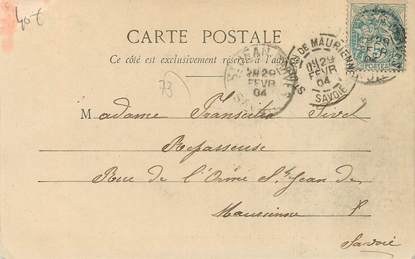 40€
CARTE POSTALE
Ce côté est exclusivement réservé à l'adresse
73
ST JEAN DE MAURIENNE
29
FEVR
04
SAVOIE
29
FEVR
04
M adame
Repasseuse
Rue de l'Orme St Jean de
Maurienne
Savoie